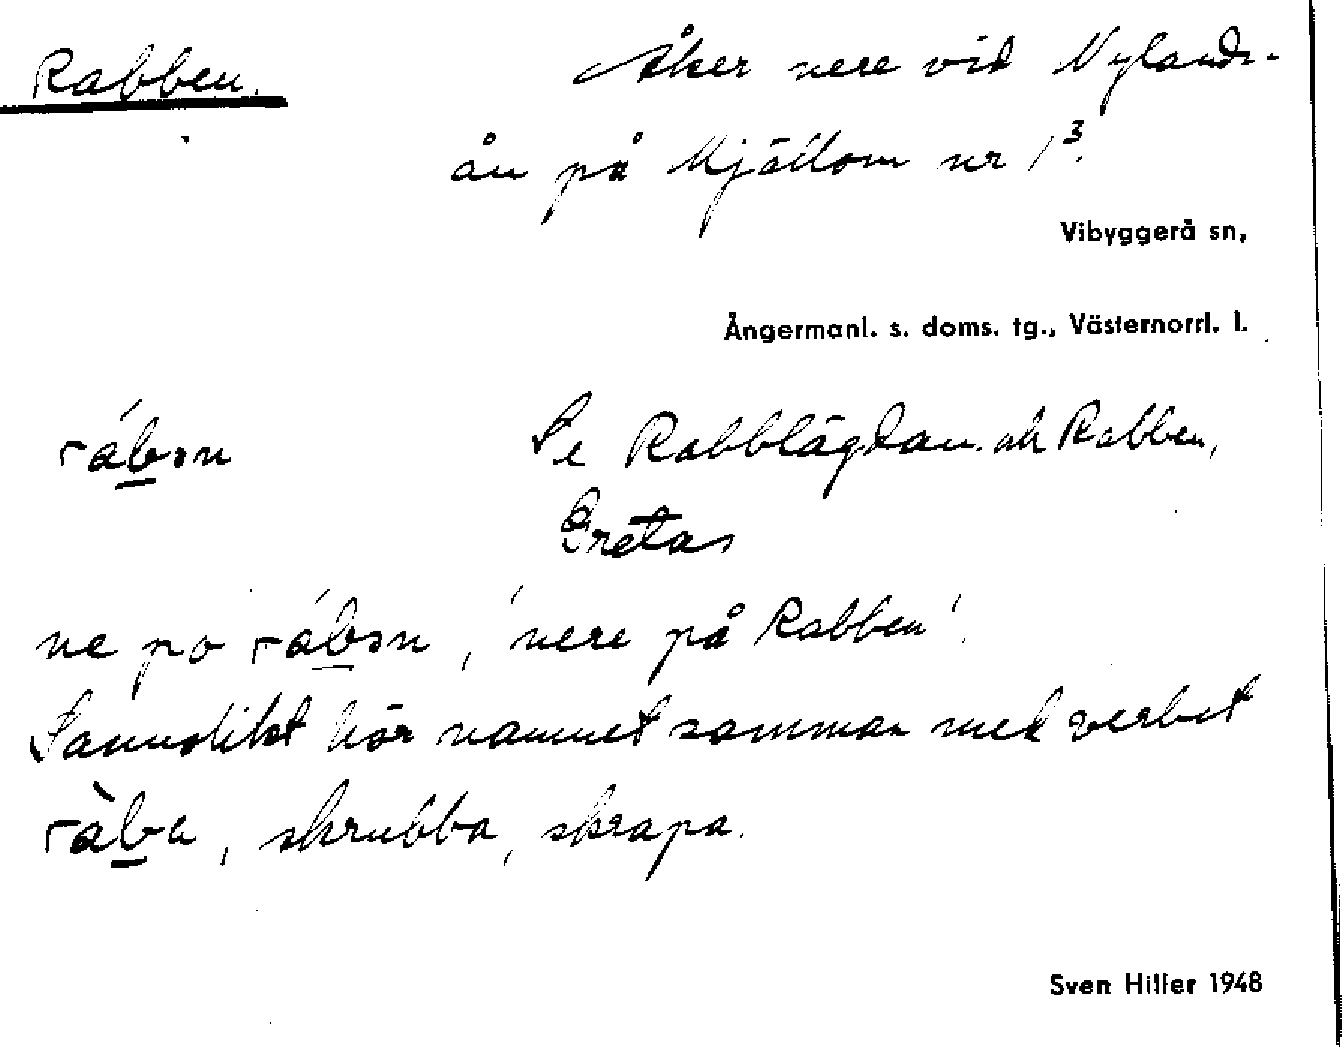 Rabben.
Åker nere vid Nylands-
ån på Mjällom nr 1³.
Vibyggerå sn,
Ångermanl. s. doms. tg., Västernorrl. l.
rábən
Se Rabblägdan. och Rabben,
Gretas
ne po rábən, 'nere på Rabben'.
Sannolikt hör namnet samman med verbet
ràba, skrubba, skrapa.
Sven Hiller 1948